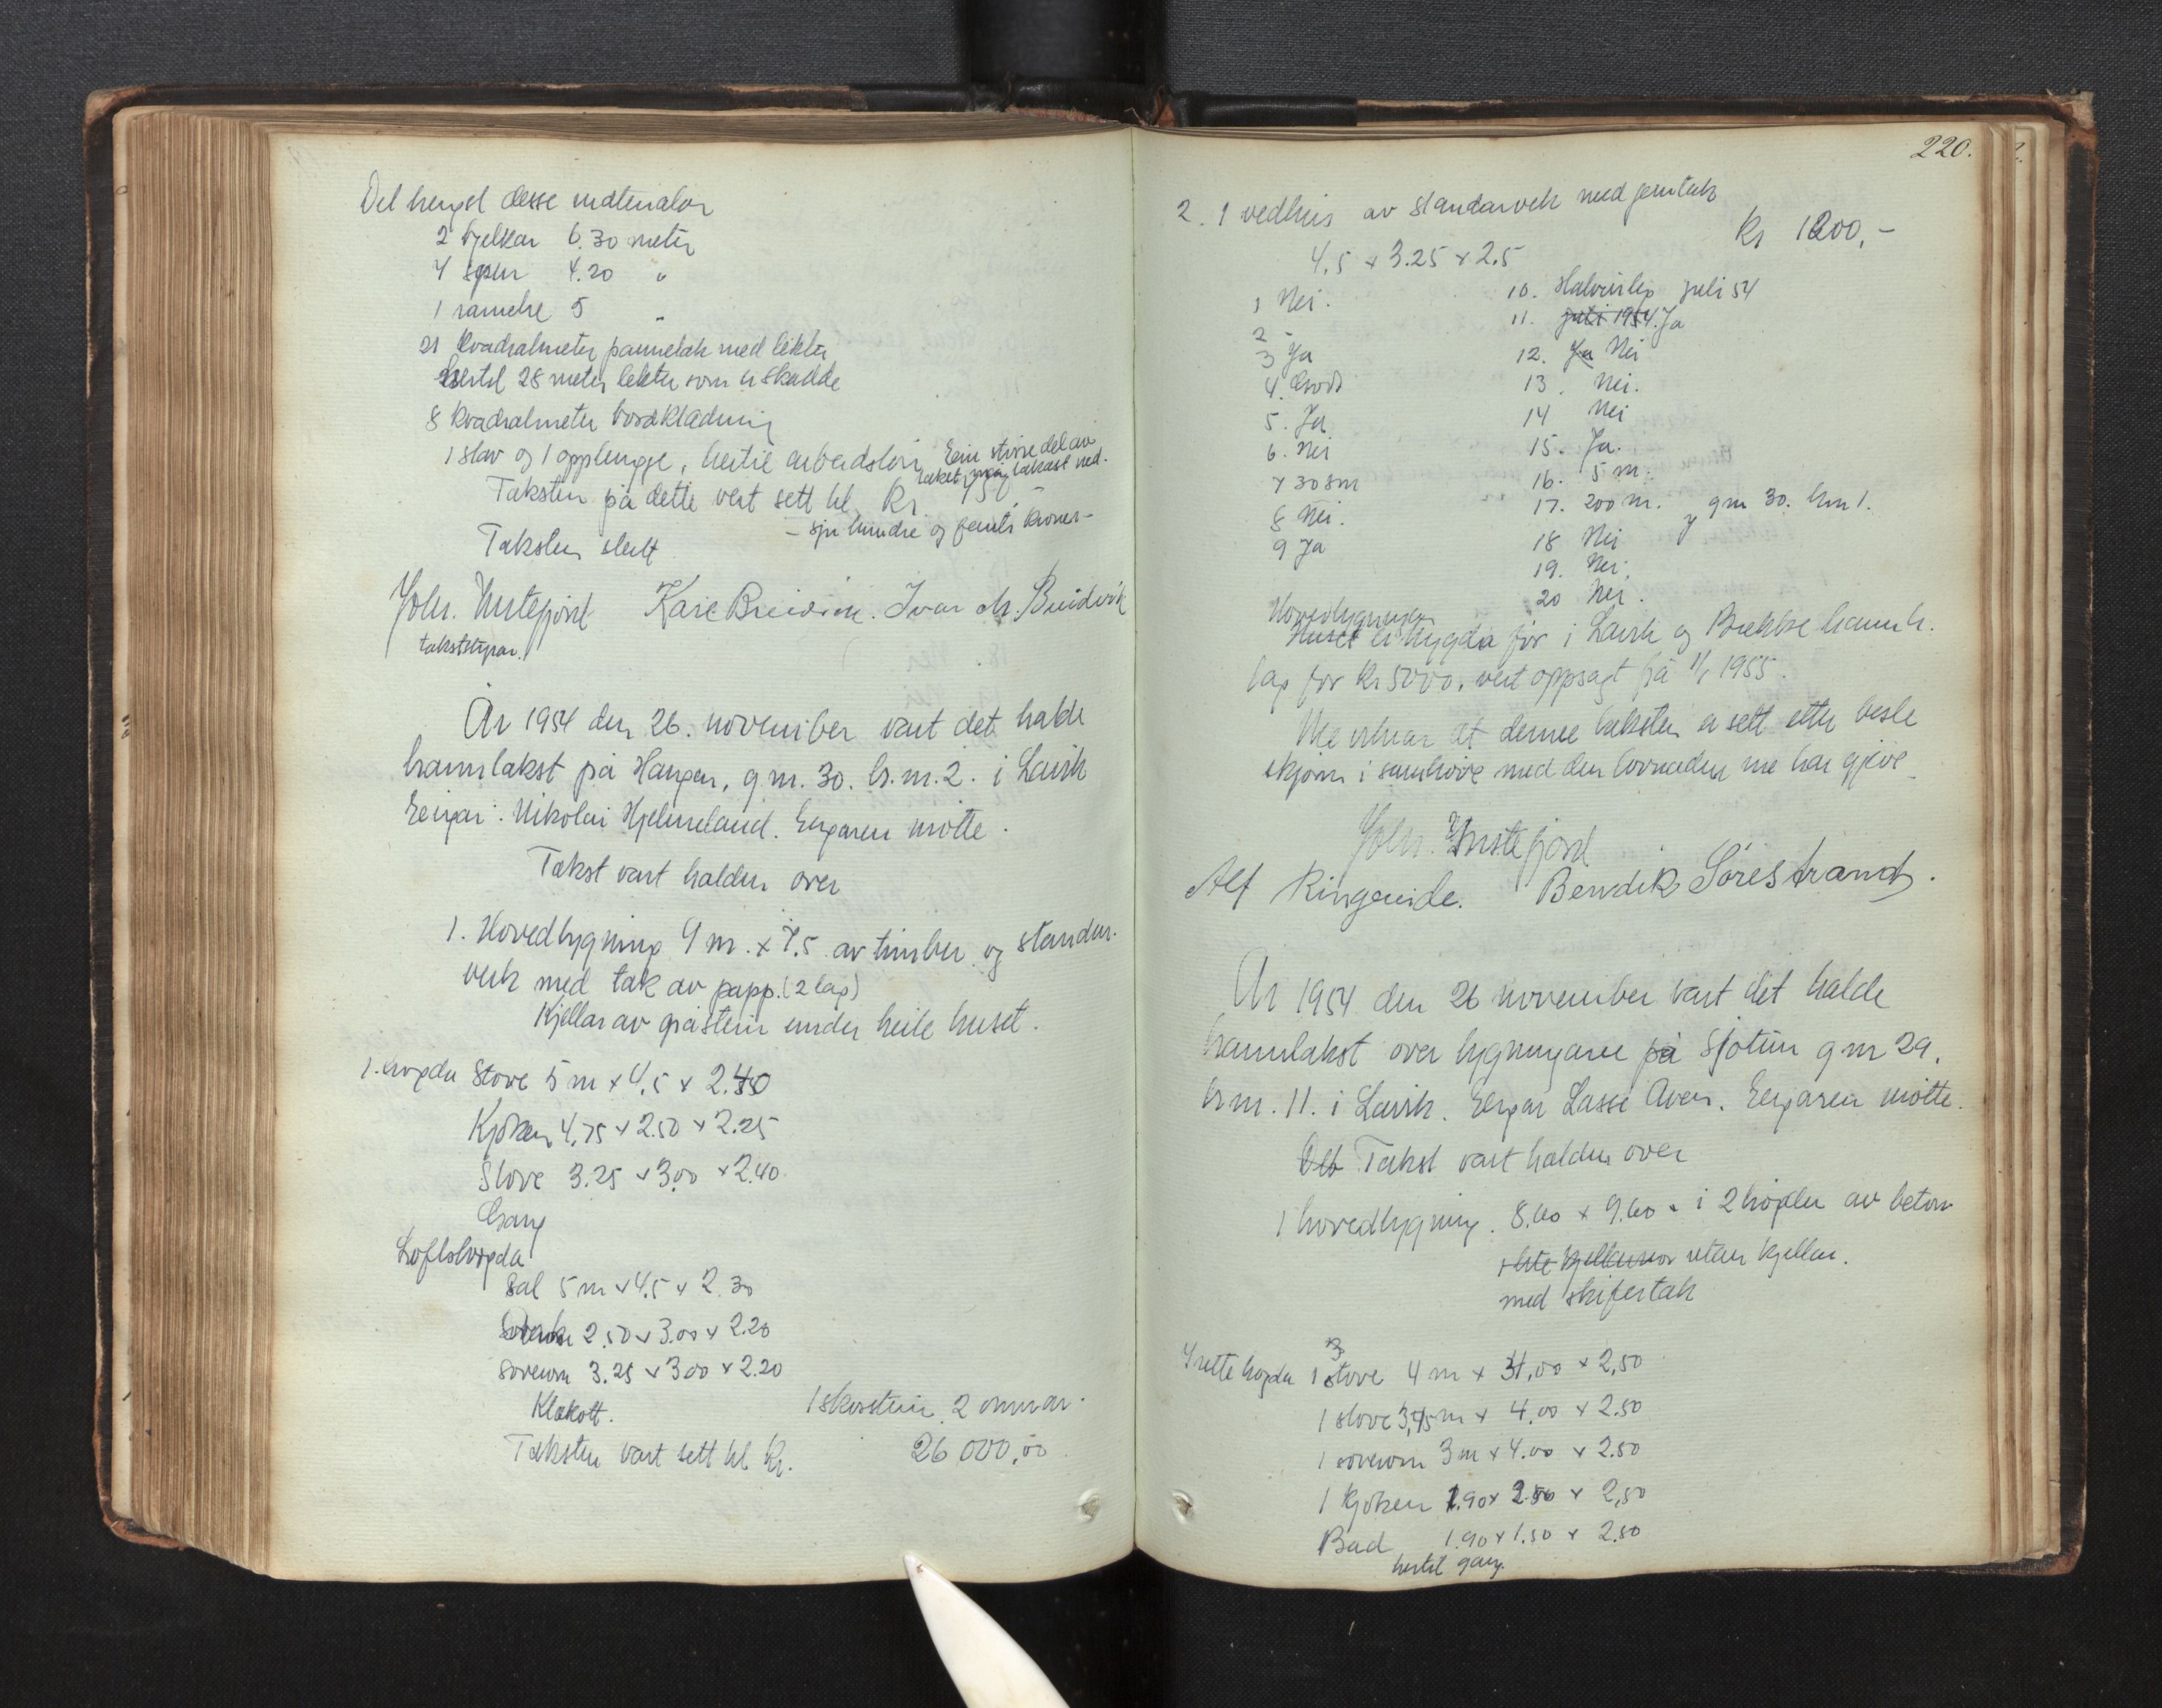 Det trengst desse materialar
2 bjelkar 6.30 meter
4 sper 4.20 "
1 ramtre 5 "
21 kvadratmeter pannetak med lekter
hertil 28 meter lekter som er skadde
8 kvadratmeter bordkledning
1 stav og 1 opplengje, hertil arbeidsløn. Ein større del av
taket må takast ned.
Taksten på dette vert sett til kr. 750,-
- sju hundre og femti kroner -
Taksten slutt
Johs. Instefjord Kåre Breivik. Ivar M. Breidvik
takststyrar.
År 1954 den 26. november vart det halde
branntakst på Haugen, g.nr. 30. br.nr. 2. i Lavik
Eeigar: Nikolai Hjelmeland. Eigaren møtte.
Takst vart halden over
1. Hovedbygning 9 m. x 7.5 av timber og stander-
verk med tak av papp. (2 lag)
Kjellar av gråstein under heile huset.
1. høgda Stove 5 m x 4,5 x 2.40
Kjøken 4,75 x 2.50 x 2.25
Stove 3.25 x 3.00 x 2.40
Gang
Loftshøgda
Sal 5 m x 4,5 x 2.30
2.50 x 3.00 x 2.20
Soverom 3.25 x 3.00 x 2.20
Klekott.
1 skorstein 2 omnar.
Taksten vart sett til kr. 26 000,00
220.
2. 1 vedhus av standarverk med jerntak
kr 1200,-
4,5 x 3.25 x 2.5
1 Nei.
2 -
3 Ja
4. Godt
5. Ja
6. Nei
7 30 sm
8 Nei.
9 Ja
10. Halvårleg juli 54
11. juli 1954. Ja
12. Ja Nei
13. Nei.
14 Nei
15. Ja.
16. 5 m.
17. 200 m. g nr 30. br nr 1.
18 Nei
19. Nei.
20 Nei.
Hovedbygningen
Huset er trygda før i Lavik og Brekke branntr.
lag for kr 5000, vert oppsagt frå 1/1 1955.
Me vitnar at denne taksten er sett etter beste
skjøn i samhøve med den lovnaden me har gjeve
Johs. Instefjord
Alf Ringereide. Bendik Sørestrand.
År 1954 den 26 november vart det halde
branntakst over bygningane på Sjøtun g nr 29.
br nr. 11. i Lavik. Eigar Lasse Aven. Eigaren møtte.
Takst vart halden over
1 hovedbygning. 8.60 x 9.60 - i 2 høgder av betong
utan kjellar.
med skifertak
I rette høgda 1 stove 4 m x 3,00 x 2,50
1 stove 3,75 m x 4,00 x 2.50
1 soverom 3 m x 4.00 x 2.50
1 kjøken 1.90 x 2.50 x 2,50
Bad 1.90 x 1.50 x 2.50
hertil gang.